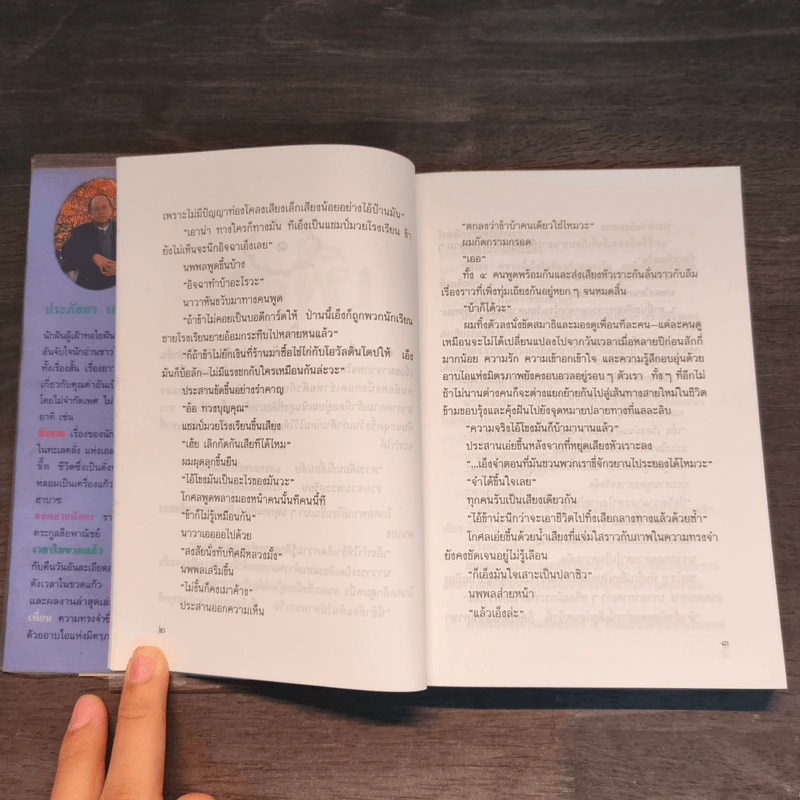 ประภัสสร เส
นักฝันผู้เฝ้าทอใยฝัน
อันจับใจนักอ่านชาว
ทั้งเรื่องสั้น เรื่องยา
เกี่ยวกับคุณค่าอันเป็
โดยไม่จำกัดเพศ ไม่
อาทิ เช่น
เรื่องของนัก
ในทะเลคลั่ง แห่งเอส
ชี้ค ชีวิตซึ่งเป็นดั่ง
หลอมเป็นเครื่องแก้ว
ฮาบาซ
ลอดลายมังกร รา
ตระกูลสือพาณิชย์
เวลาในขวดแก้ว
กับคืนวันอันละเอียดอ
ดังเวลาในขวดแก้ว
และผลงานล่าสุดเล่ม
เพื่อน ความทรงจำซึ่
ด้วยอาบไอแห่งมิตรภ
เพราะไม่มีปัญญาท่องโคลงเสียงเล็กเสียงน้อยอย่างไอ้ป้านมัน"
"เอาน่า ทางใครก็ทางมัน ทีเอ็งเป็นแชมป์มวยโรงเรียน ข้า
ยังไม่เห็นจะนึกอิจฉาเอ็งเลย"
นพพลพูดขึ้นบ้าง
"อิจฉาทำบ้าอะไรวะ"
นาวาหันขวับมาทางคนพูด
"ถ้าข้าไม่คอยเป็นบอดีการ์ดให้ ป่านนี้เอ็งก็ถูกพวกนักเรียน
ชายโรงเรียนยายอ้อมกระทืบไปหลายหนแล้ว"
"ก็ถ้าข้าไม่ยักเงินที่ร้านมาซื้อไข่ไก่กับโอวัลตินโดปให้ เอ็ง
มันก็ข้อลัก—ไม่มีแรงชกกับใครเหมือนกันล่ะวะ"
ประสานขัดขึ้นอย่างรำคาญ
"อ้อ ทวงบุญคุณ"
แชมป์มวยโรงเรียนขึ้นเสียง
"เฮ้ย เลิกกัดกันเสียทีได้ไหม"
ผมผุดลุกขึ้นยืน
"ไอ้โขงมันเป็นอะไรของมันวะ"
โกศลพูดพลางมองหน้าคนนั้นทีคนนี้ที
"ข้าก็ไม่รู้เหมือนกัน"
นาวาเออออไปด้วย
"สงสัยนั่งทับทิศผีหลวงมั้ง"
นพพลเสริมขึ้น
"ไม่งั้นก็คงเมาค้าง"
ประสานออกความเห็น
๒
"ตกลงว่าข้าบ้าคนเดียวใช่ไหมวะ"
ผมกัดกรามกรอด
"เออ"
ทั้ง ๔ คนพูดพร้อมกันและส่งเสียงหัวเราะกันลั่นราวกับลืม
เรื่องราวที่เพิ่งทุ่มเถียงกันอยู่หยก ๆ จนหมดสิ้น
"บ้าก็ได้วะ"
ผมทิ้งตัวลงนั่งขัดสมาธิและมองดูเพื่อนทีละคน—แต่ละคนดู
เหมือนจะไม่ได้เปลี่ยนแปลงไปจากวันเวลาเมื่อหลายปีก่อนสักกี่
มากน้อย ความรัก ความเข้าอกเข้าใจ และความรู้สึกอบอุ่นด้วย
อาบไอแห่งมิตรภาพยังคงอบอวลอยู่รอบ ๆ ตัวเรา ทั้ง ๆ ที่อีกไม่
ช้าไม่นานต่างคนก็จะต่างแยกย้ายกันไปสู่เส้นทางสายใหม่ในชีวิต
ข้ามขอบรุ้งและคุ้งฝันไปยังจุดหมายปลายทางที่แลละลิบ
"ความจริงไอ้โขงมันก็บ้ามานานแล้ว"
ประสานเอ่ยขึ้นหลังจากที่หยุดเสียงหัวเราะลง
"...เอ็งจำตอนที่มันชวนพวกเราขี่จักรยานไประยองได้ไหมวะ"
"จำได้ขึ้นใจเลย"
ทุกคนรับเป็นเสียงเดียวกัน
"ไอ้ข้าน่ะนึกว่าจะเอาชีวิตไปทิ้งเสียกลางทางแล้วด้วยซ้ำ"
โกศลเอ่ยขึ้นด้วยน้ำเสียงที่แจ่มใสราวกับภาพในความทรงจำ
ยังคงชัดเจนอยู่ไม่รู้เลือน
"ก็เอ็งมันใจเสาะเป็นปลาซิว"
นพพลส่ายหน้า
"แล้วเอ็งล่ะ"
๓